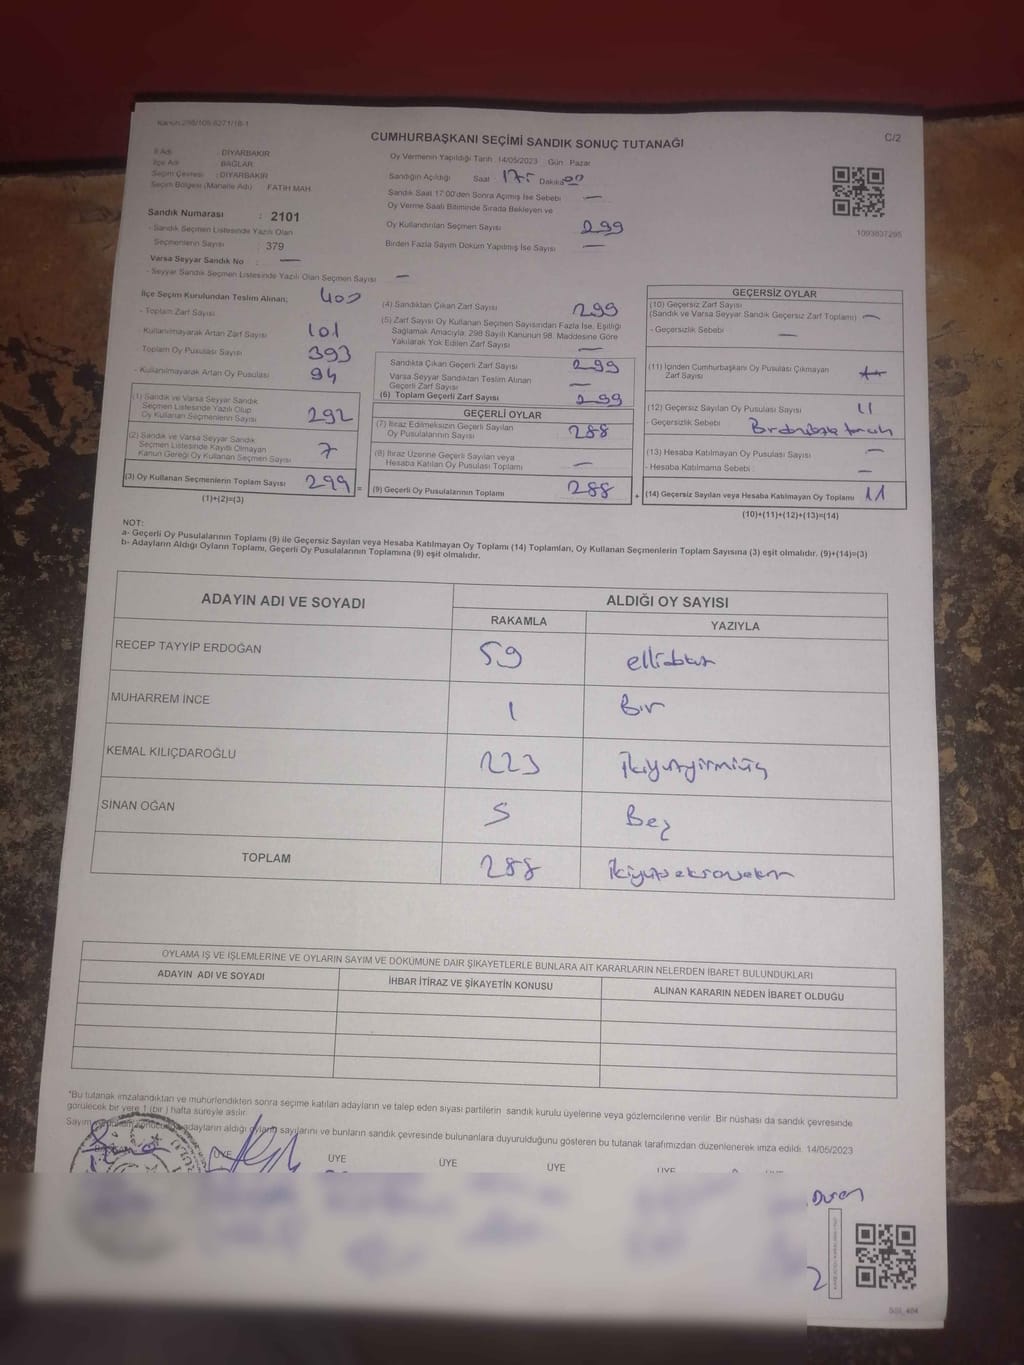 Kanun:298/105-6271/18-1
CUMHURBAŞKANI SEÇİMİ SANDIK SONUÇ TUTANAĞI
C/2
İl Adı : DİYARBAKIR
İlçe Adı : BAĞLAR
Seçim Çevresi : DİYARBAKIR
Seçim Bölgesi (Mahalle Adı) FATİH MAH.
Sandık Numarası : 2101
- Sandık Seçmen Listesinde Yazılı Olan
Seçmenlerin Sayısı : 379
Varsa Seyyar Sandık No : —
- Seyyar Sandık Seçmen Listesinde Yazılı Olan Seçmen Sayısı —
Oy Vermenin Yapıldığı Tarih 14/05/2023 Gün Pazar
Sandığın Açıldığı Saat Dakika
Sandık Saat 17:00'den Sonra Açılmış İse Sebebi —
Oy Verme Saati Bitiminde Sırada Bekleyen ve
Oy Kullandırılan Seçmen Sayısı 299
Birden Fazla Sayım Döküm Yapılmış İse Sayısı —
1093837295
İlçe Seçim Kurulundan Teslim Alınan;
- Toplam Zarf Sayısı 400
- Kullanılmayarak Artan Zarf Sayısı 101
- Toplam Oy Pusulası Sayısı 393
- Kullanılmayarak Artan Oy Pusulası 94
(1) Sandık ve Varsa Seyyar Sandık
Seçmen Listesinde Yazılı Olup
Oy Kullanan Seçmenlerin Sayısı 292
(2) Sandık ve Varsa Seyyar Sandık
Seçmen Listesinde Kayıtlı Olmayan
Kanun Gereği Oy Kullanan Seçmen Sayısı 7
(3) Oy Kullanan Seçmenlerin Toplam Sayısı 299 =
(1)+(2)=(3)
(4) Sandıktan Çıkan Zarf Sayısı 299
(5) Zarf Sayısı Oy Kullanan Seçmen Sayısından Fazla İse, Eşitliği
Sağlamak Amacıyla, 298 Sayılı Kanunun 98. Maddesine Göre
Yakılarak Yok Edilen Zarf Sayısı —
Sandıkta Çıkan Geçerli Zarf Sayısı 299
Varsa Seyyar Sandıktan Teslim Alınan
Geçerli Zarf Sayısı —
(6) Toplam Geçerli Zarf Sayısı 299
GEÇERLİ OYLAR
(7) İtiraz Edilmeksizin Geçerli Sayılan
Oy Pusulalarının Sayısı 288
(8) İtiraz Üzerine Geçerli Sayılan veya
Hesaba Katılan Oy Pusulası Toplamı —
(9) Geçerli Oy Pusulalarının Toplamı 288 +
GEÇERSİZ OYLAR
(10) Geçersiz Zarf Sayısı
(Sandık ve Varsa Seyyar Sandık Geçersiz Zarf Toplamı) —
- Geçersizlik Sebebi : —
(11) İçinden Cumhurbaşkanı Oy Pusulası Çıkmayan
Zarf Sayısı
(12) Geçersiz Sayılan Oy Pusulası Sayısı 11
- Geçersizlik Sebebi :
(13) Hesaba Katılmayan Oy Pusulası Sayısı —
- Hesaba Katılmama Sebebi : —
(14) Geçersiz Sayılan veya Hesaba Katılmayan Oy Toplamı 11
(10)+(11)+(12)+(13)=(14)
NOT:
a- Geçerli Oy Pusulalarının Toplamı (9) ile Geçersiz Sayılan veya Hesaba Katılmayan Oy Toplamı (14) Toplamları, Oy Kullanan Seçmenlerin Toplam Sayısına (3) eşit olmalıdır. (9)+(14)=(3)
b- Adayların Aldığı Oyların Toplamı, Geçerli Oy Pusulalarının Toplamına (9) eşit olmalıdır.
ADAYIN ADI VE SOYADI
ALDIĞI OY SAYISI
RAKAMLA YAZIYLA
RECEP TAYYİP ERDOĞAN 59 ellidokuz
MUHARREM İNCE 1 Bir
KEMAL KILIÇDAROĞLU 223 İkiyüzyirmiüç
SİNAN OĞAN 5 Beş
TOPLAM 288 İkiyüzseksensekiz
OYLAMA İŞ VE İŞLEMLERİNE VE OYLARIN SAYIM VE DÖKÜMÜNE DAİR ŞİKAYETLERLE BUNLARA AİT KARARLARIN NELERDEN İBARET BULUNDUKLARI
ADAYIN ADI VE SOYADI İHBAR İTİRAZ VE ŞİKAYETİN KONUSU ALINAN KARARIN NEDEN İBARET OLDUĞU
*Bu tutanak imzalandıktan ve mühürlendikten sonra seçime katılan adayların ve talep eden siyasi partilerin sandık kurulu üyelerine veya gözlemcilerine verilir. Bir nüshası da sandık çevresinde
görülecek bir yere 1 (bir ) hafta süreyle asılır.
adayların aldığı oyların sayılarını ve bunların sandık çevresinde bulunanlara duyurulduğunu gösteren bu tutanak tarafımızdan düzenlenerek imza edildi. 14/05/2023
ÜYE ÜYE ÜYE ÜYE ÜYE